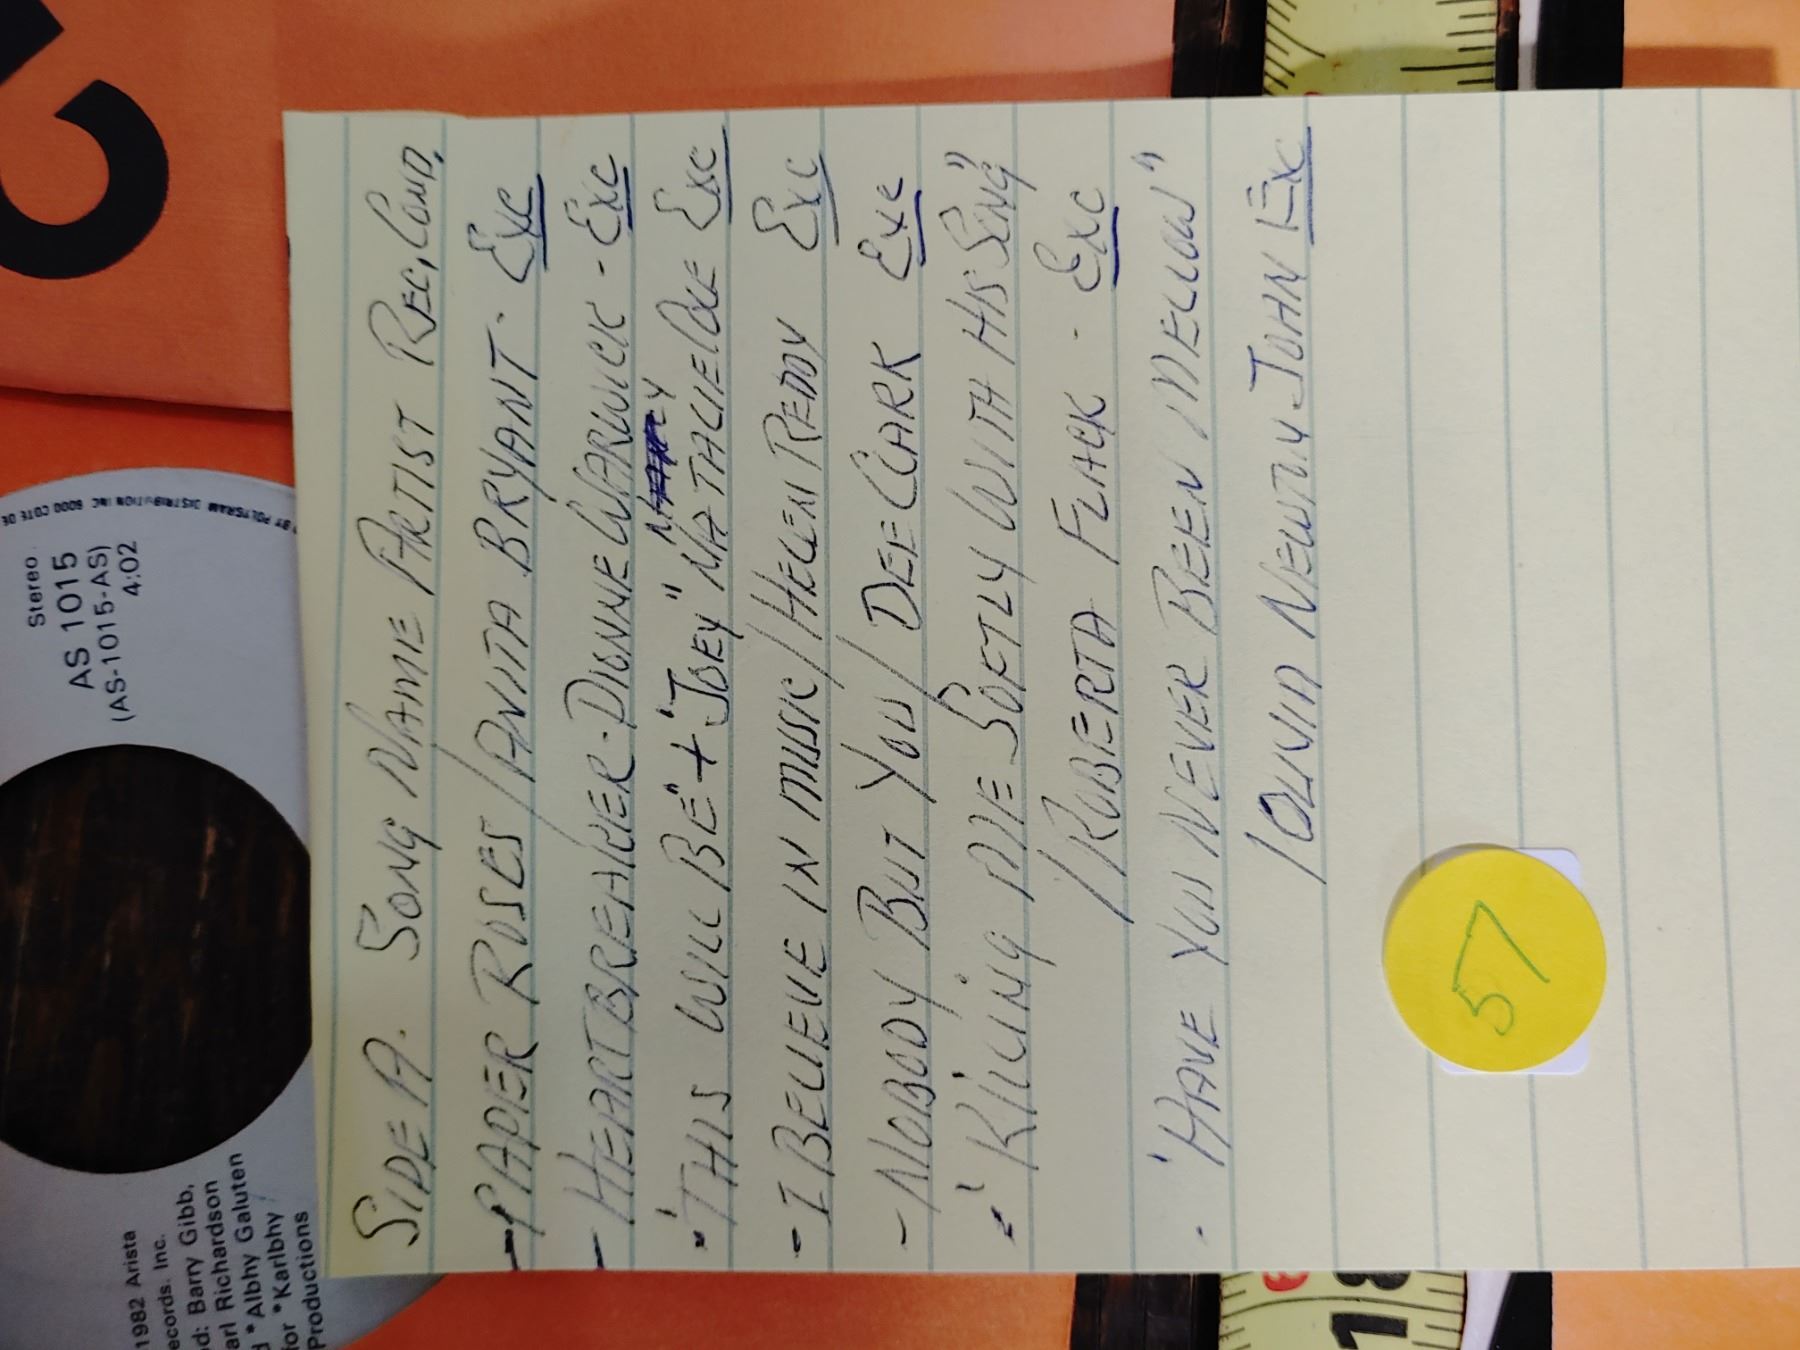 Stereo
AS 1015
(AS-1015-AS)
4:02
BY POLYGRAM DISTRIBUTION INC 6000 COTE DE
1982 Arista
ecords. Inc.
d: Barry Gibb,
arl Richardson
d * Albhy Galuten
for * Karlbhy
Productions
SIDE A. SONG NAME ARTIST REC, COND,
- PAPER ROSES / ANITA BRYANT - EXC
- HEARTBREAKER - DIONNE WARWICK - EXC
- 'THIS WILL BE" + 'JOEY" NATALIE COLE EXC
- I BELIEVE IN MUSIC / HELEN REDDY EXC
- NOBODY BUT YOU / DEE CLARK EXC
- 'KILLING ME SOFTLY WITH HIS SONG"
/ ROBERTA FLACK - EXC
- 'HAVE YOU NEVER BEEN MELLOW"
/ OLIVIA NEWTON JOHN EXC
57
18